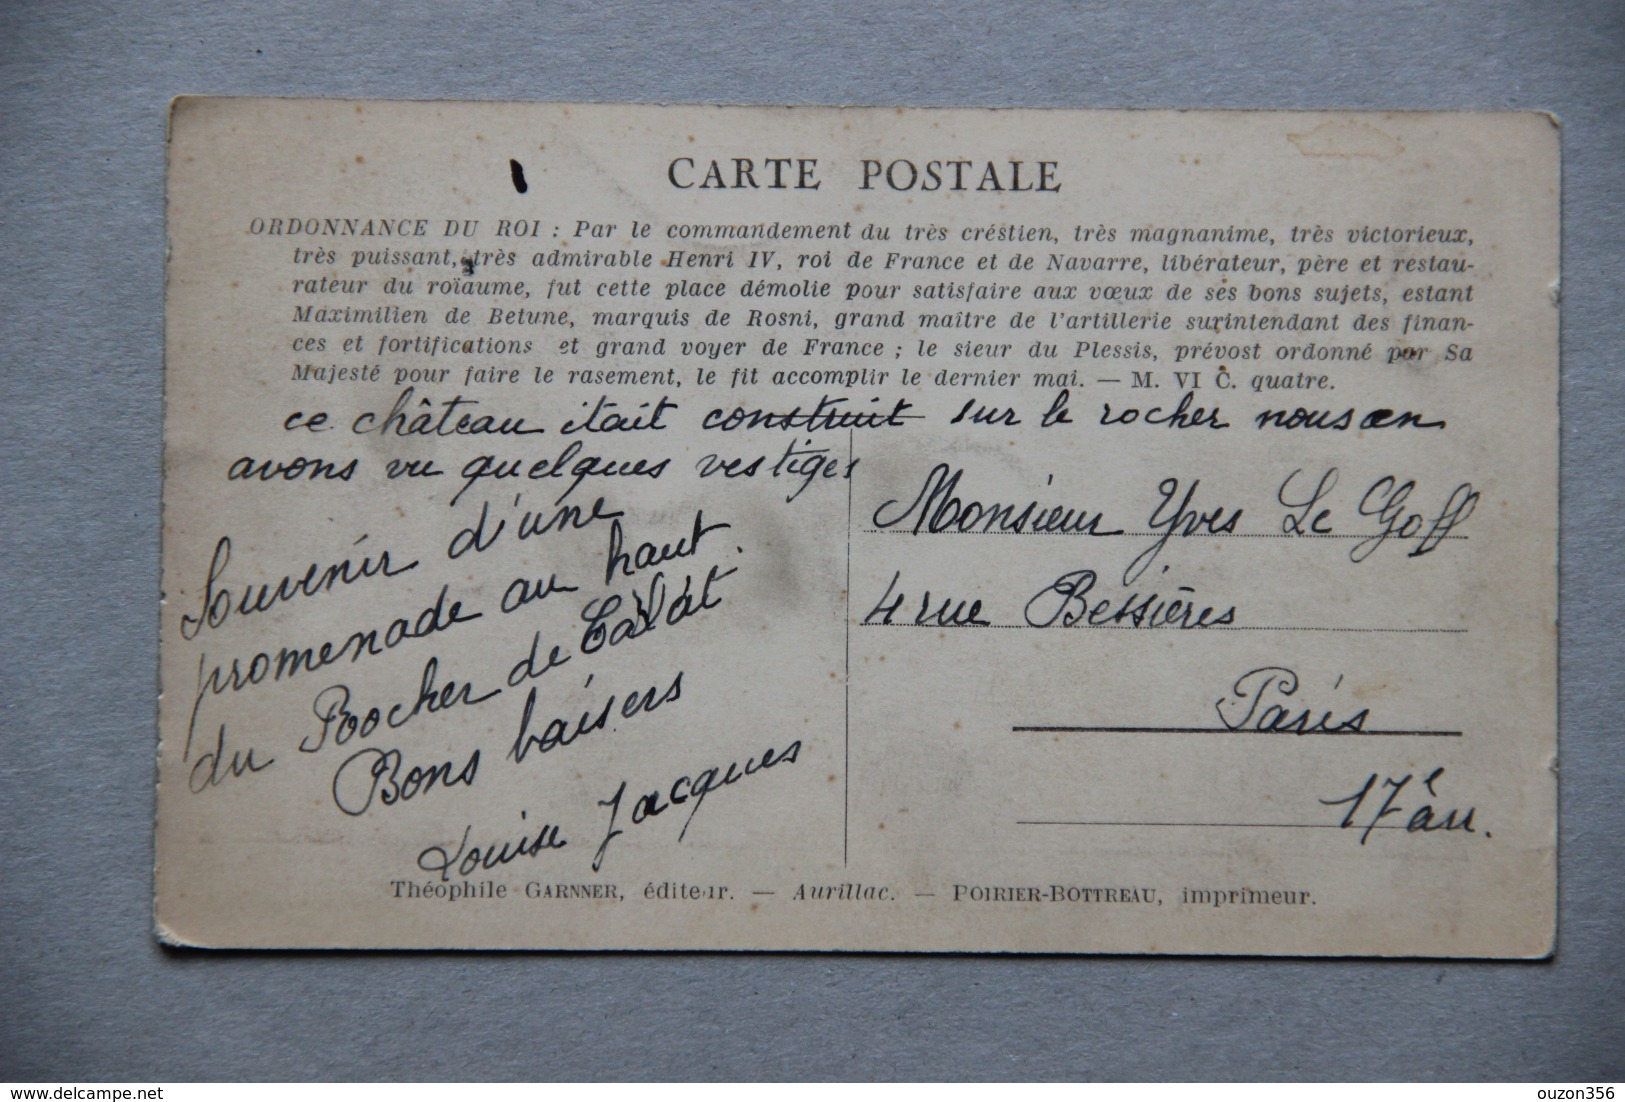 CARTE POSTALE
ORDONNANCE DU ROI : Par le commandement du très créstien, très magnanime, très victorieux,
très puissant, très admirable Henri IV, roi de France et de Navarre, libérateur, père et restau-
rateur du roïaume, fut cette place démolie pour satisfaire aux vœux de ses bons sujets, estant
Maximilien de Betune, marquis de Rosni, grand maître de l'artillerie surintendant des finan-
ces et fortifications et grand voyer de France ; le sieur du Plessis, prévost ordonné par Sa
Majesté pour faire le rasement, le fit accomplir le dernier mai. — M. VI C. quatre.
ce château était construit sur le rocher nous en
avons vu quelques vestiges
Souvenir d'une
promenade au haut
du Roocher de Calat.
Bons baisers
Louise Jacques
Monsieur Yves Le Goff
4 rue Bessières
Paris
17e arr.
Théophile GARNNER, éditeur. — Aurillac. — POIRIER-BOTTREAU, imprimeur.
delcampe.net
ouzon356